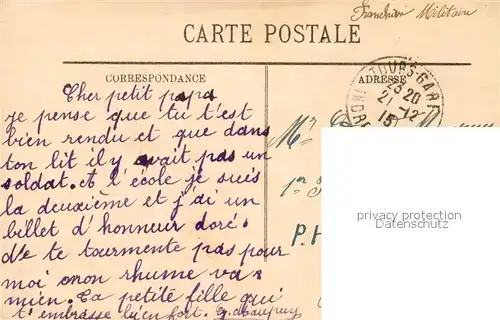 Franchise Militaire
CARTE POSTALE
CORRESPONDANCE
ADRESSE
TOURS-GARE
23 20
21-12
15
INDRE
Cher petit papa
je pense que tu t'est
bien rendu et que dans
ton lit il y avait pas un
soldat. et l'école je suis
la deuxième et j'ai un
billet d'honneur doré.
Ne te tourmente pas pour
moi mon rhume va
mien. Ta petite fille qui
t'embrasse bien fort.
Mr
P.
privacy protection
Datenschutz